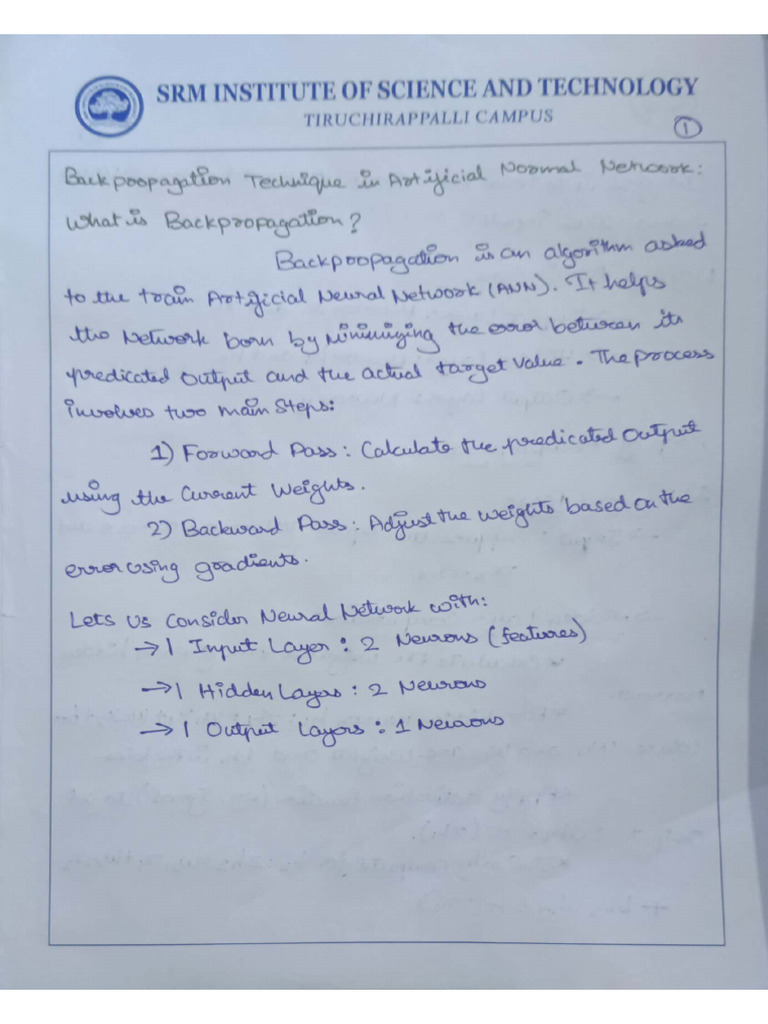 SRM INSTITUTE OF SCIENCE AND TECHNOLOGY
TIRUCHIRAPPALLI CAMPUS
1
Backpoopagation Technique in Artificial Normal Network:
What is Backpropagation?
Backpoopagation is an algorithm asked
to the train Artificial Neural Network (ANN). It helps
the Network born by Minimizing the error between its
predicated output and the actual target value. The process
involves two main steps:
1) Forward Pass: Calculate the predicated output
using the Current Weights.
2) Backward Pass: Adjust the weights based on the
error using gradients.
Lets us consider Neural Network with:
→ 1 Input Layer: 2 Neurons (features)
→ 1 Hidden Layers: 2 Neurons
→ 1 Output Layers: 1 Neurons